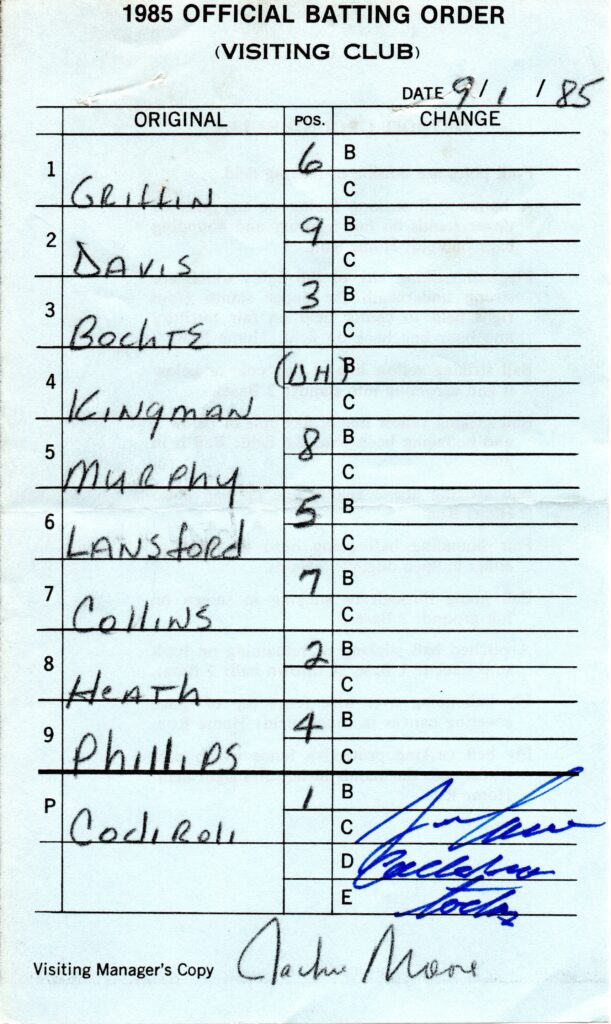 1985 OFFICIAL BATTING ORDER
(VISITING CLUB)
DATE 9/1/85
ORIGINAL POS. CHANGE
1 GRIFFIN 6 B
C
2 DAVIS 9 B
C
3 BOCHTE 3 B
C
4 KINGMAN (DH) B
C
5 MURPHY 8 B
C
6 LANSFORD 5 B
C
7 COLLINS 7 B
C
8 HEATH 2 B
C
9 PHILLIPS 4 B
C
P CODIROLI 1 B
C
D
E today
Visiting Manager's Copy Jackie Moore